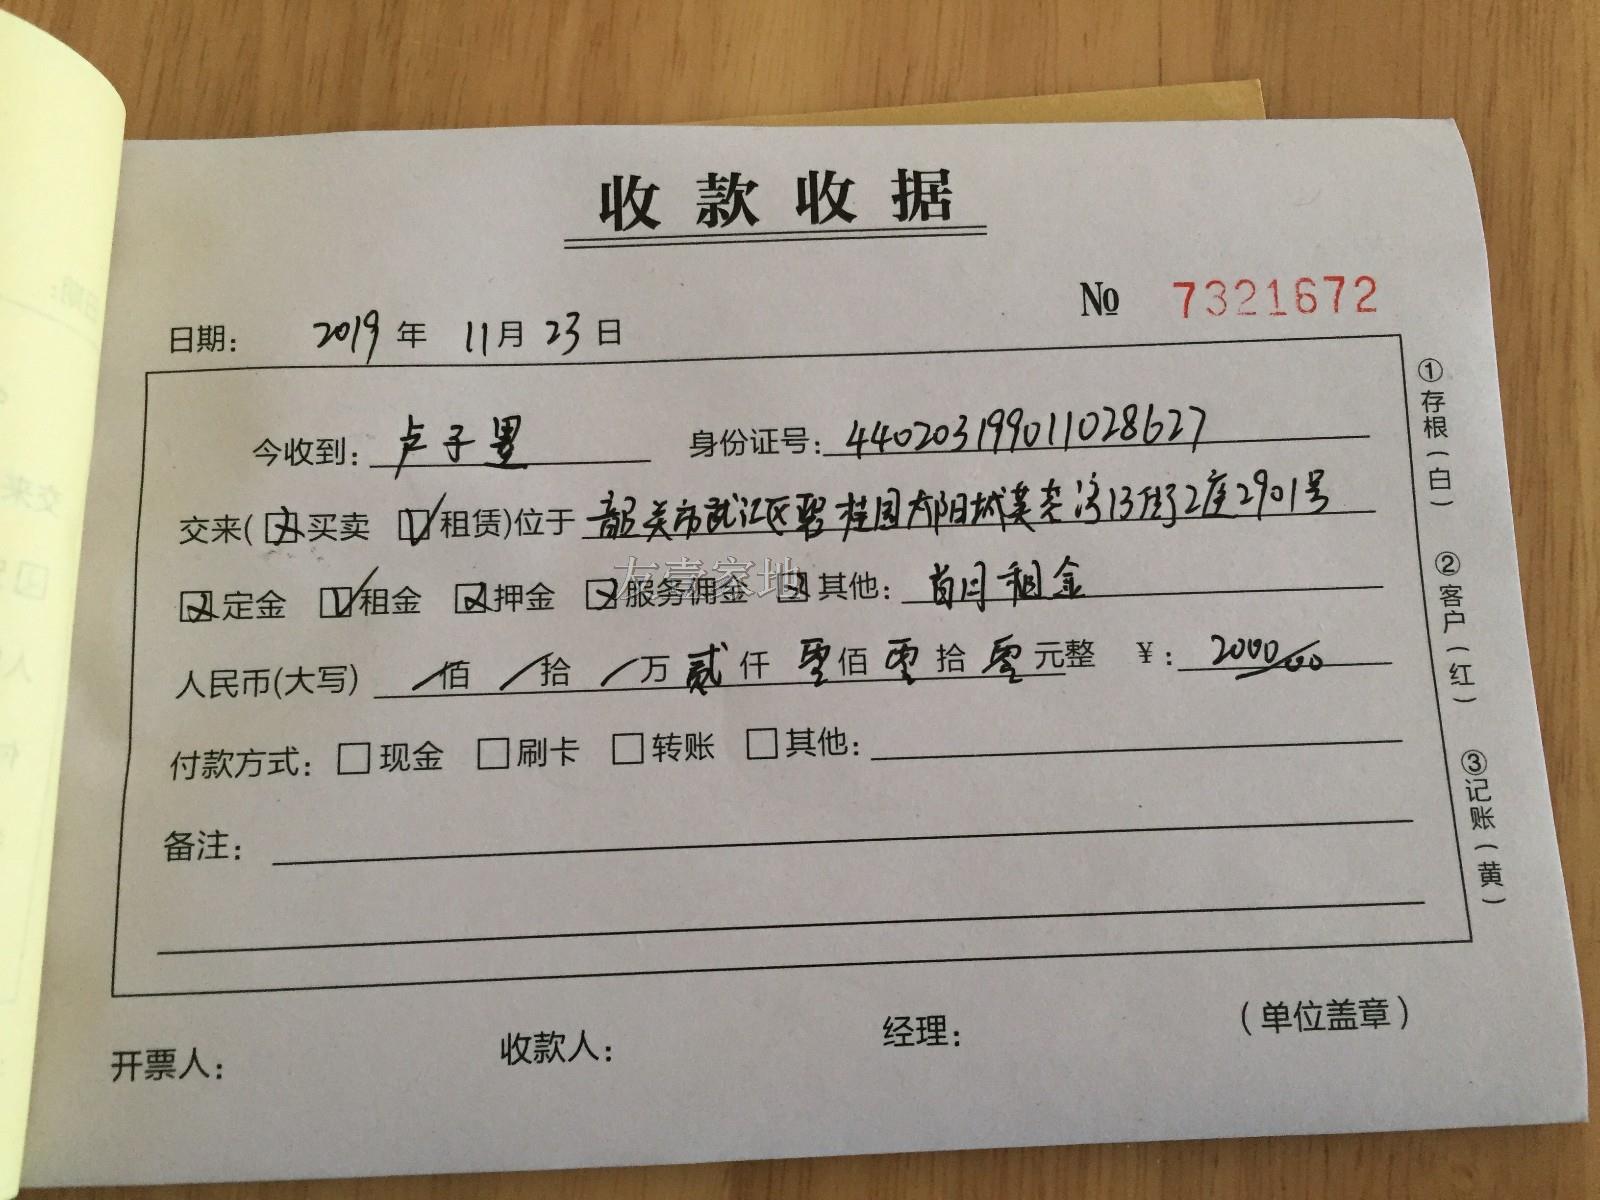 收款收据
№ 7321672
日期: 2019 年 11 月 23 日
今收到: 卢子里 身份证号: 440203199011028627
交来(☒买卖 ☑租赁)位于 韶关市武江区碧桂园太阳城芙蓉湾13街2座2901号
☒定金 ☑租金 ☒押金 ☒服务佣金 ☒其他: 首月租金
友壹家地
人民币(大写) /佰 /拾 /万 贰仟 零佰 零拾 零元整 ¥: 2000.00
付款方式: □现金 □刷卡 □转账 □其他:
备注:
开票人: 收款人: 经理: (单位盖章)
①存根(白) ②客户(红) ③记账(黄)